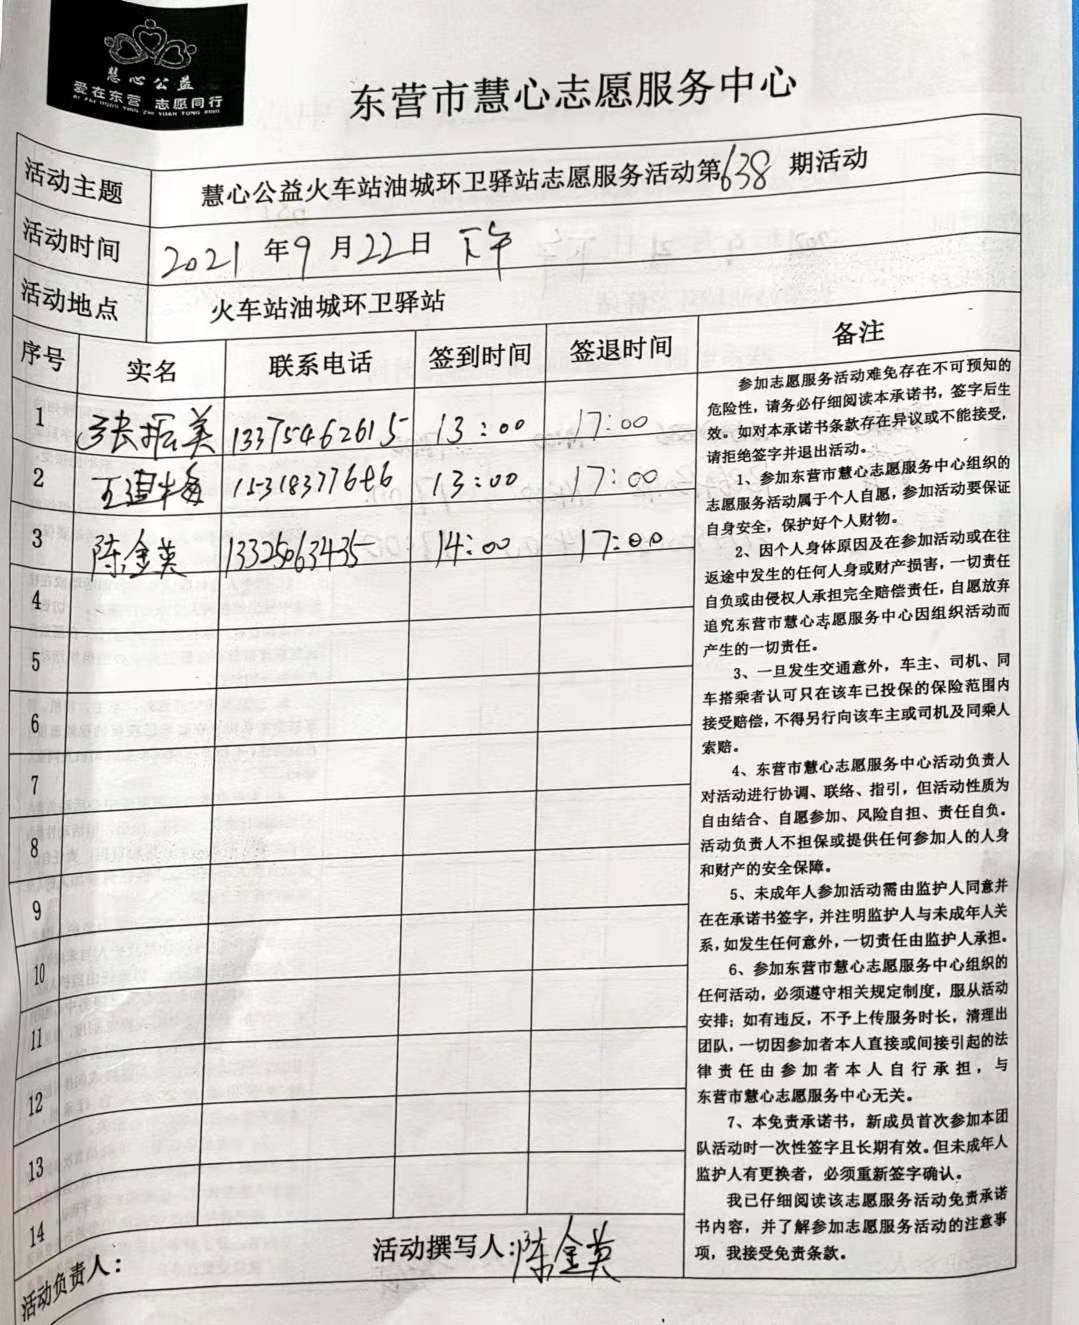 慧心公益
爱在东营 志愿同行
AI ZAI DONG YING ZHI YUAN TONG XING
东营市慧心志愿服务中心
活动主题 慧心公益火车站油城环卫驿站志愿服务活动第638期活动
活动时间 2021年9月22日 下午
活动地点 火车站油城环卫驿站
序号 实名 联系电话 签到时间 签退时间 备注
1 张振美 13375462615 13:00 17:00
2 15318377686 13:00 17:00
3 陈金英 13325063435 14:00 17:00
4
5
6
7
8
9
10
11
12
13
14
参加志愿服务活动难免存在不可预知的
危险性，请务必仔细阅读本承诺书，签字后生
效。如对本承诺书条款存在异议或不能接受，
请拒绝签字并退出活动。
1、参加东营市慧心志愿服务中心组织的
志愿服务活动属于个人自愿，参加活动要保证
自身安全，保护好个人财物。
2、因个人身体原因及在参加活动或在往
返途中发生的任何人身或财产损害，一切责任
自负或由侵权人承担完全赔偿责任，自愿放弃
追究东营市慧心志愿服务中心因组织活动而
产生的一切责任。
3、一旦发生交通意外，车主、司机、同
车搭乘者认可只在该车已投保的保险范围内
接受赔偿，不得另行向该车主或司机及同乘人
索赔。
4、东营市慧心志愿服务中心活动负责人
对活动进行协调、联络、指引，但活动性质为
自由结合、自愿参加、风险自担、责任自负。
活动负责人不担保或提供任何参加人的人身
和财产的安全保障。
5、未成年人参加活动需由监护人同意并
在在承诺书签字，并注明监护人与未成年人关
系，如发生任何意外，一切责任由监护人承担。
6、参加东营市慧心志愿服务中心组织的
任何活动，必须遵守相关规定制度，服从活动
安排；如有违反，不予上传服务时长，清理出
团队，一切因参加者本人直接或间接引起的法
律责任由参加者本人自行承担，与
东营市慧心志愿服务中心无关。
7、本免责承诺书，新成员首次参加本团
队活动时一次性签字且长期有效。但未成年人
监护人有更换者，必须重新签字确认。
我已仔细阅读该志愿服务活动免责承诺
书内容，并了解参加志愿服务活动的注意事
项，我接受免责条款。
活动负责人： 活动撰写人：陈金英